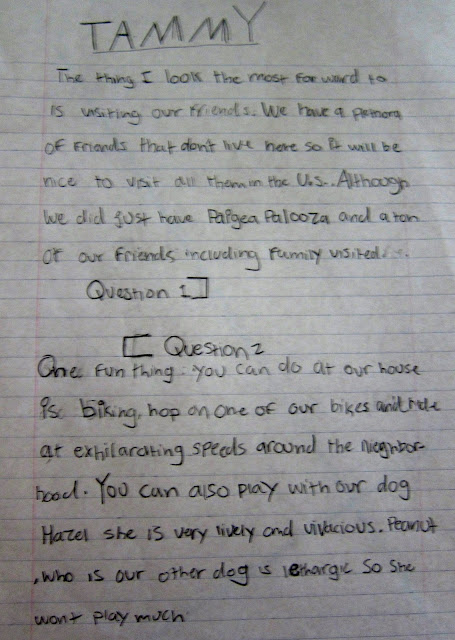 TAMMY
The thing I look the most forward to
is visiting our friends. We have a plethora
of friends that don't live here so it will be
nice to visit all them in the U.S.. Although
we did just have Papgea Palooza and a ton
of our friends including family visited...
Question 1]
[ Question 2
One fun thing. you can do at our house
is biking, hop on one of our bikes and ride
at exhilarating speeds around the neighbor-
hood. You can also play with our dog
Hazel she is very lively and vivacious. Peanut
, who is our other dog is lethargic so she
wont play much.